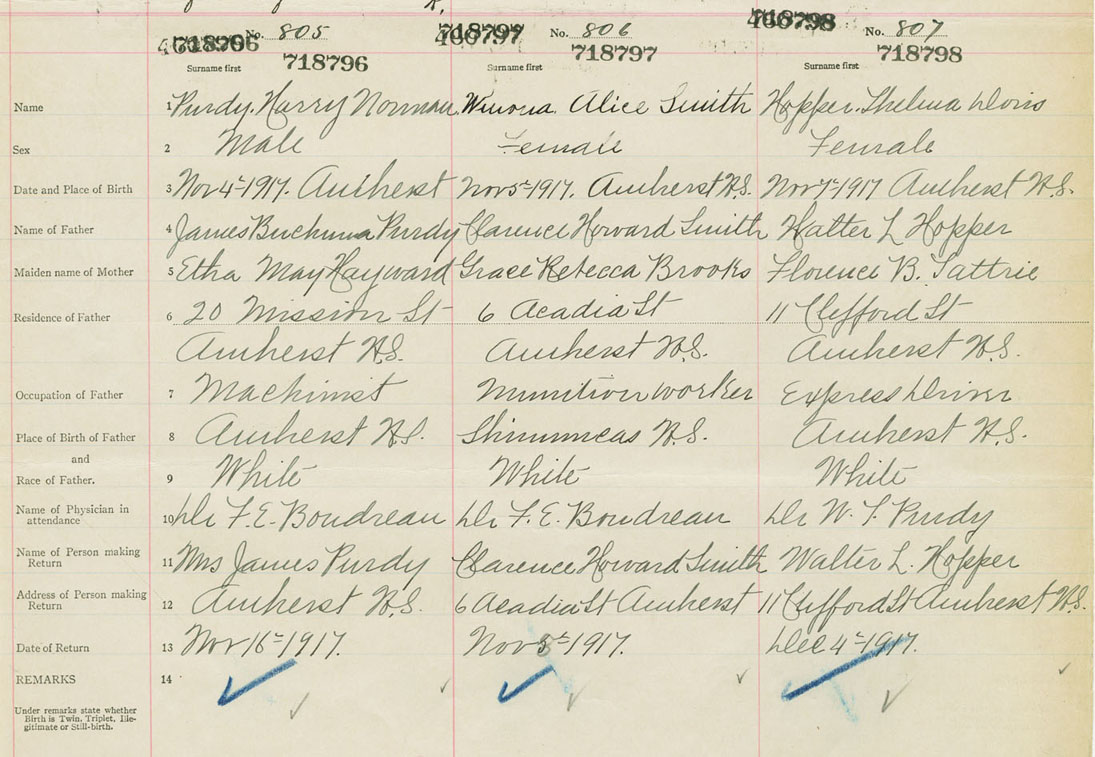 No. 805 No. 806 No. 807
718796 718797 718798
718796 718797 718798
Surname first Surname first Surname first
Name 1 Purdy, Harry Norman Winona Alice Smith Hopper, Thelma Doris
Sex 2 Male Female Female
Date and Place of Birth 3 Nov 4th 1917. Amherst Nov 5th 1917. Amherst N.S. Nov 7th 1917 Amherst N.S.
Name of Father 4 James Purdy Clarence Howard Smith Walter L Hopper
Maiden name of Mother 5 Etha May Hayward Grace Rebecca Brooks Florence B. Tattrie
Residence of Father 6 20 Mission St 6 Acadia St 11 Clifford St
Amherst N.S. Amherst N.S. Amherst N.S.
Occupation of Father 7 Machinist Munition worker Express Driver
Place of Birth of Father 8 Amherst N.S. Shinimicas N.S. Amherst N.S.
and
Race of Father. 9 White White White
Name of Physician in
attendance 10 Dr F. E. Boudreau Dr F. E. Boudreau Dr W. T. Purdy
Name of Person making
Return 11 Mrs James Purdy Clarence Howard Smith Walter L. Hopper
Address of Person making
Return 12 Amherst N.S. 6 Acadia St Amherst 11 Clifford St Amherst N.S.
Date of Return 13 Nov 16th 1917. Nov 5th 1917. Dec 4th 1917.
REMARKS 14
Under remarks state whether
Birth is Twin, Triplet, Ille-
gitimate or Still-birth.